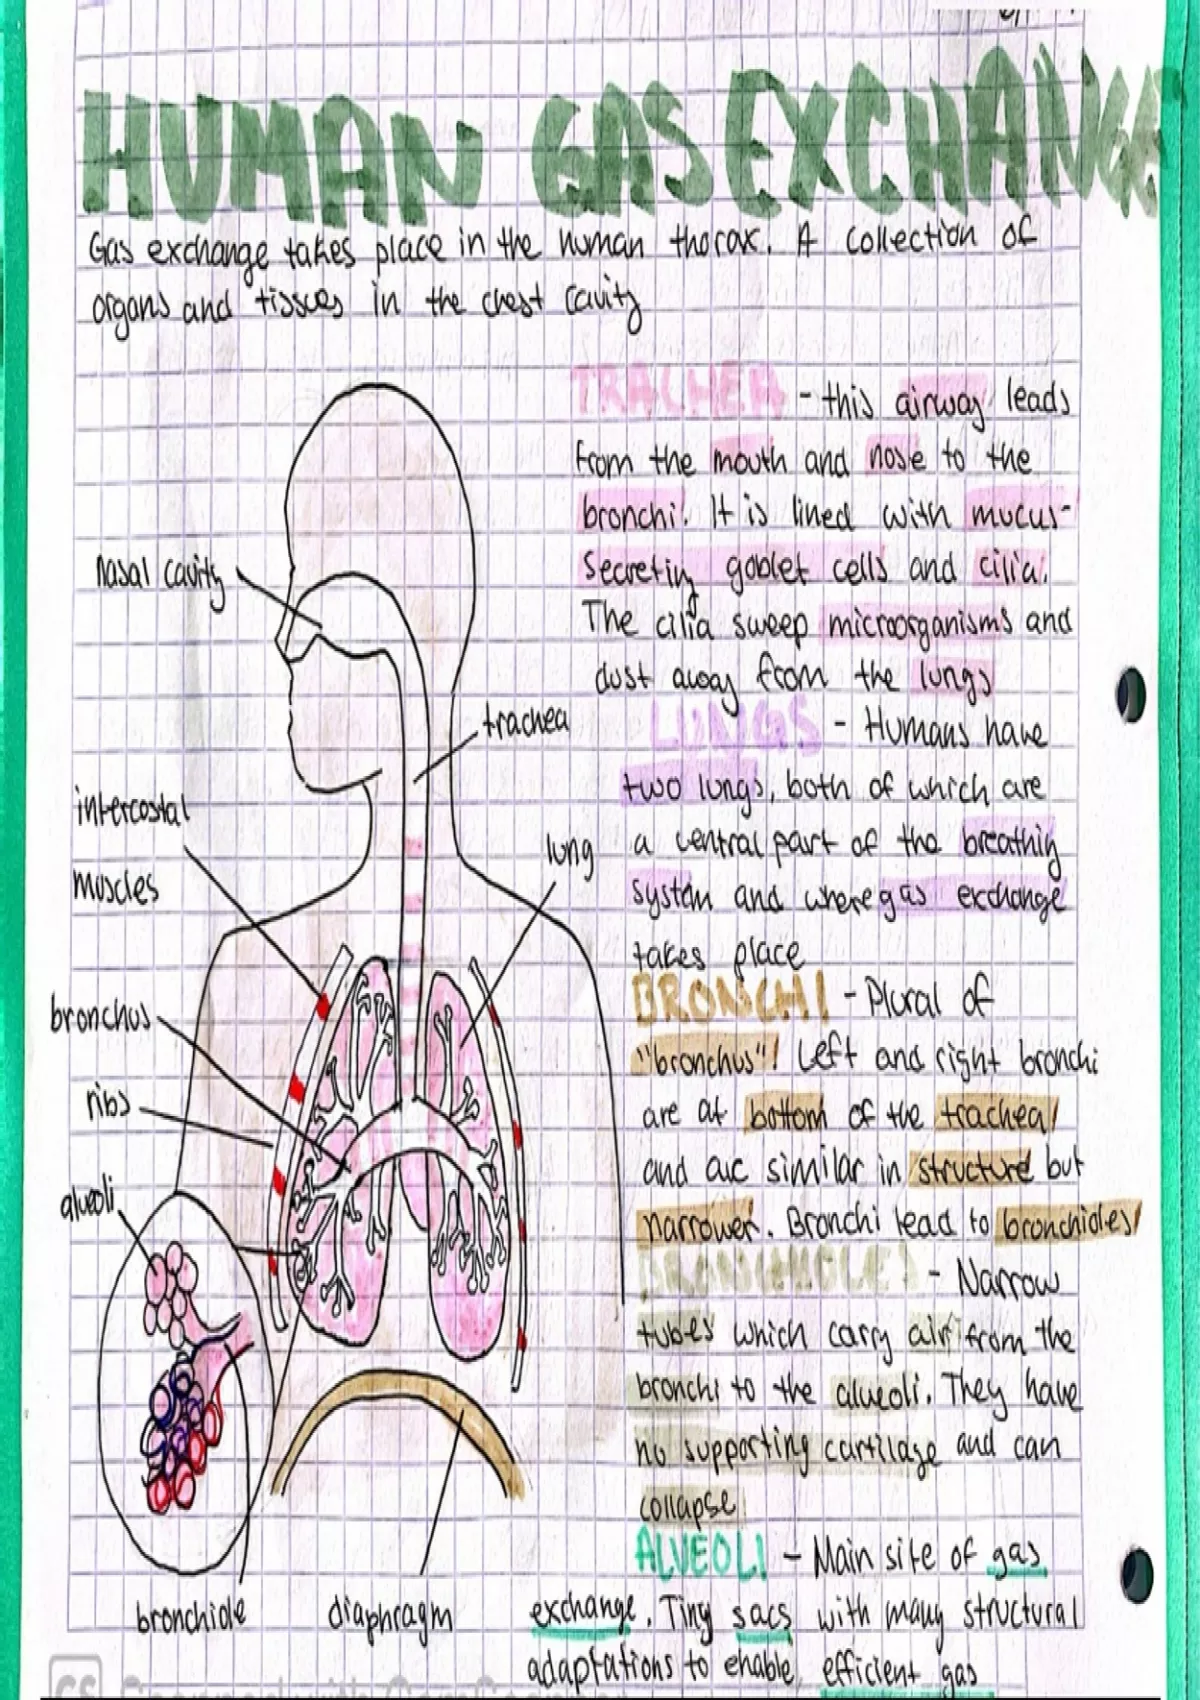 HUMAN GAS EXCHANGE
Gas exchange takes place in the human thorax. A collection of
organs and tissues in the chest cavity
TRACHEA - this airway leads
from the mouth and nose to the
bronchi. It is lined with mucus-
secreting goblet cells and cilia.
The cilia sweep microorganisms and
dust away from the lungs
nasal cavity
trachea
intercostal
muscles
lung
bronchus
ribs
alveoli
bronchiole
diaphragm
LUNGS - Humans have
two lungs, both of which are
a central part of the breathing
system and where gas exchange
takes place
BRONCHI - Plural of
"bronchus"! Left and right bronchi
are at bottom of the trachea
and are similar in structure but
narrower. Bronchi lead to bronchioles
BRONCHIOLES - Narrow
tubes which carry air from the
bronchi to the alveoli. They have
no supporting cartilage and can
collapse
ALVEOLI - Main site of gas
exchange. Tiny sacs with many structural
adaptations to enable efficient gas
CS